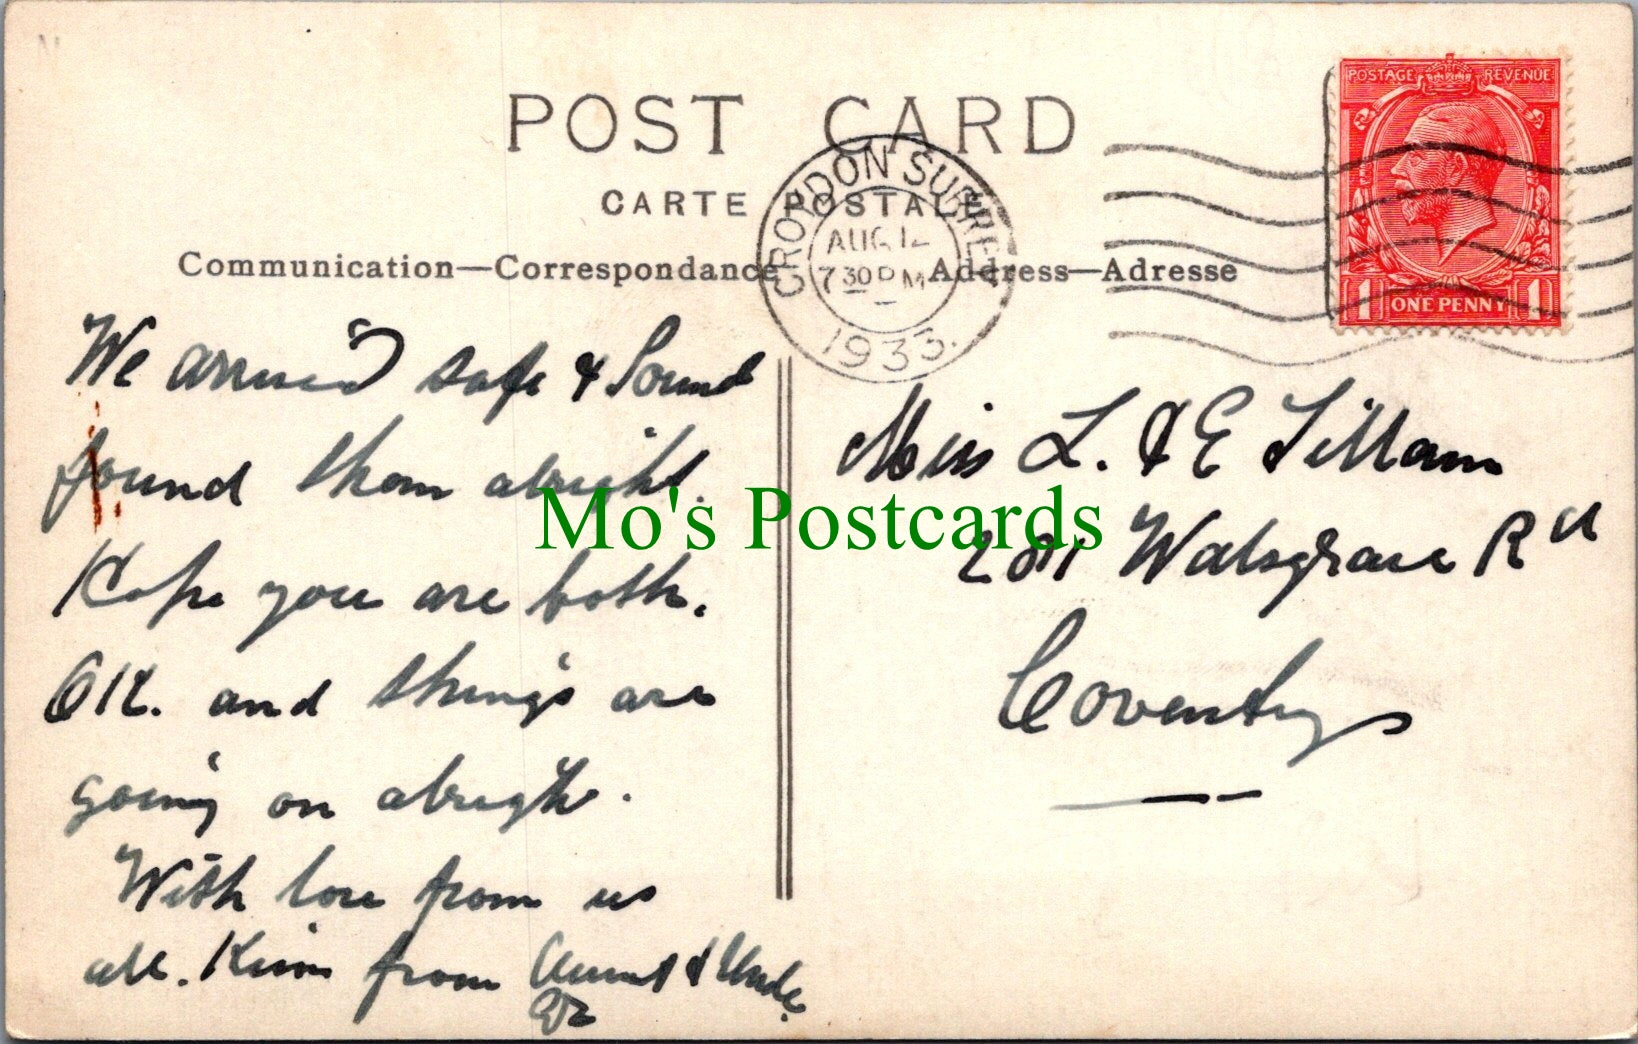 POST CARD
CARTE POSTALE
Communication—Correspondance
Address—Adresse
CROYDON SURREY
AUG 12
7 30 PM
1933.
POSTAGE REVENUE
1 ONE PENNY 1
We arrived safe & Sound
found them alright.
Hope you are both.
OK. and things are
going on alright.
With love from us
all. Kiss from Aunt & Uncle
Miss L. & E Tillam
Walsgrave Rd
Coventry
Mo's Postcards